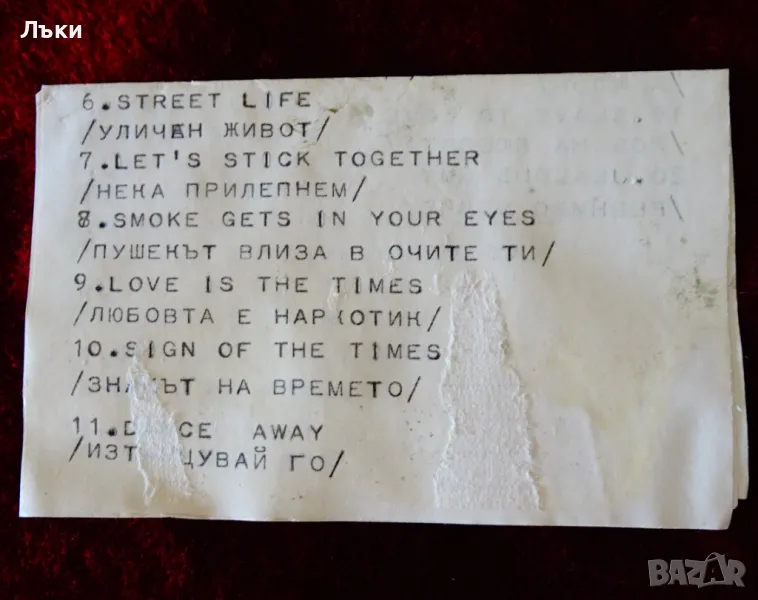 Лъки
6.STREET LIFE
/УЛИЧЕН ЖИВОТ/
7.LET'S STICK TOGETHER
/НЕКА ПРИЛЕПНЕМ/
8.SMOKE GETS IN YOUR EYES
/ПУШЕКЪТ ВЛИЗА В ОЧИТЕ ТИ/
9.LOVE IS THE TIMES
/ЛЮБОВТА Е НАРКОТИК/
10.SIGN OF THE TIMES
/ЗНАКЪТ НА ВРЕМЕТО/
11. AWAY
ГО/
BAZAR